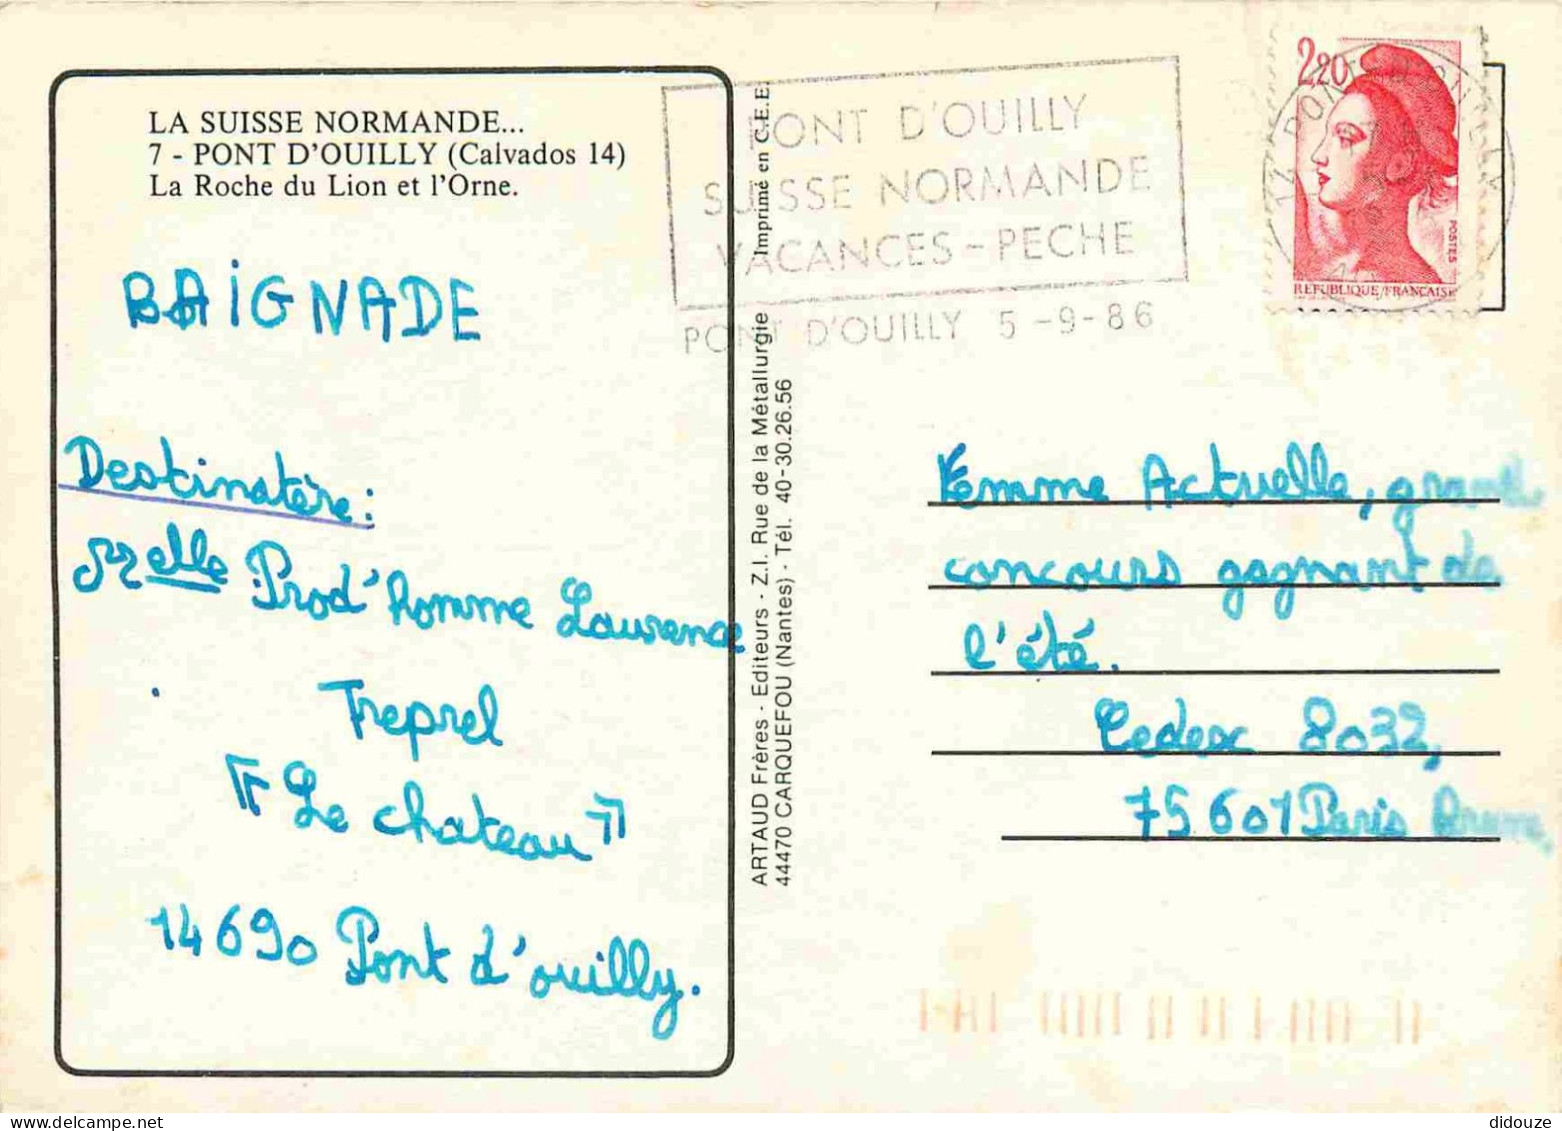 LA SUISSE NORMANDE...
7 - PONT D'OUILLY (Calvados 14)
La Roche du Lion et l'Orne.
BAIGNADE
Destinatère :
Melle Prod'homme Laurence
Treprel
"Le chateau"
14690 Pont d'ouilly.
ARTAUD Frères - Editeurs - Z.I. Rue de la Métallurgie Imprimé en C.E.E.
44470 CARQUEFOU (Nantes) - Tél. 40-30.26.56
PONT D'OUILLY
SUISSE NORMANDE
VACANCES - PECHE
PONT D'OUILLY 5 -9-86
2,20
POSTES
REPUBLIQUE FRANCAISE
Femme Actuelle, grand
concours gagnant de
l'été.
Cedex 8032,
75601 Paris Brune,
didouze